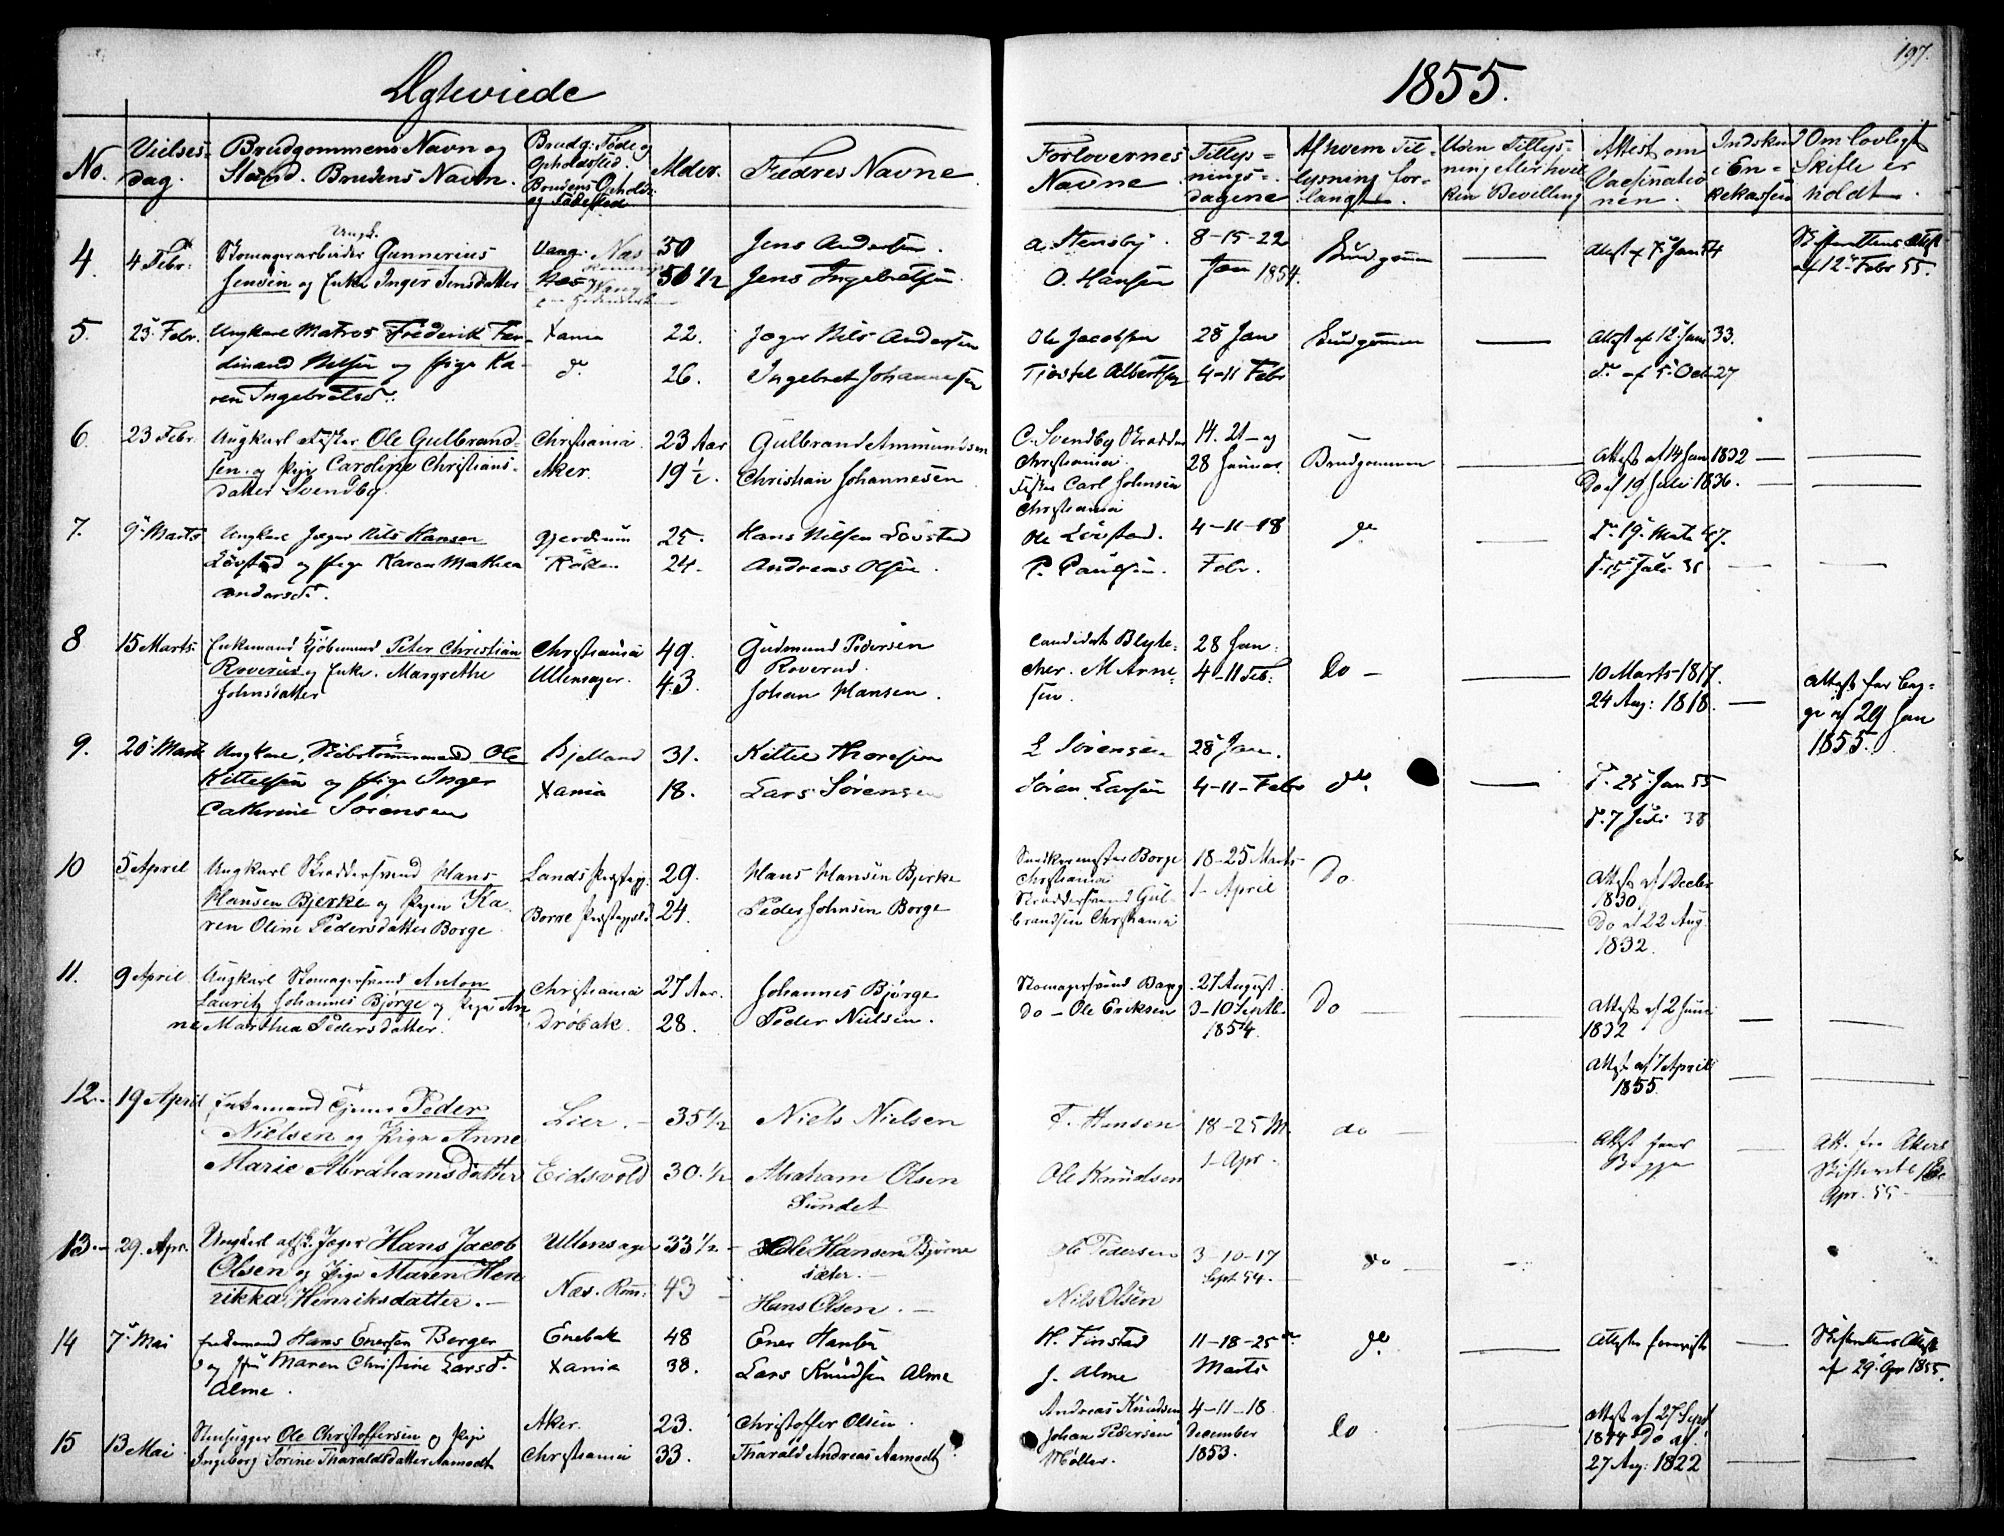 Ægteviede
1855.
197.
No.
Vielses-
dag.
Brudgommens Navn og
Stand. Brudens Navn.
Brudg: Føde og
Opholdssted.
Brudens Opholds
og Fødested
Alder.
Fædres Navne.
Forlovernes
Navne
Tillys=
nings=
dagene
Af hvem Til-
lysning for-
langt.
Uden Tillys-
ning efter hvil
ken Bevilling
Attest om
Vaccinatio
nen.
Indskud
i En-
kekassen
Om lovligt
Skifte er
holdt
4.
4 Febr:
Ungk.
Skomagerarbeider Gunnerius
Jensen og Enke Inger Jensdatter
Vang. Næs
Næs Vang
50
50 1/2
Jens Andersen.
Jens Ingebretsen.
A. Stensby.
O. Hansen
8-15-22
Jan 1854.
Brudgom
Attest af 7 Jan 14
Skifterettens Attest
af 12 Febr 55.
5.
25 Febr.
Ungkarl Matros Frederik Fer-
dinand Nilsen og Pige Ka-
ren Ingebretsd.
Xania
do.
22.
26.
Jæger Nils Andersen
Ingebret Johannesen
Ole Jacobsen
Tiostel Albertsen
28 Jan
4-11 Febr
Brudgommen
Attest af 12 Juni 33.
do af 5 Oct 27
6.
23 Febr.
Ungkarl Ole Gulbrand-
sen og Pige Caroline Christians-
datter Svendby.
Christiania
Aker.
23 Aar
19 1/2.
Gulbrand Ammundsen
Christian Johannesen
C. Svendby
Christiania
Carl Johnsen
Christiania
14. 21- og
28 Januar.
Brudgommen
Attest af 14 Jan 1832
Do af 19 Juli 1836.
7.
9 Marts
Ungkarl Jæger Nils Hansen
Løvstad og Pige Karen Mathea
Andersd.
Gjerdrum
Røken
25.
24.
Hans Nilsen Løvstad
Andreas Olsen.
Ole Løvstad.
P. Paulsen.
4-11-18
Febr.
do
8
15 Marts.
Enkemand Kjøbmand Peter Christian
Roverud og Enke. Margrethe
Johnsdatter
Christiania
Ullensager.
49.
43.
Gudmund Pedersen
Roverud.
Johan Hansen.
Candidat Blyte-
cher. M Arne-
sen.
28 Jan:
4-11 Feb:
Do -
10 Marts 1817.
24 Aug: 1818.
Attest for Beg-
ge af 29 Jan
1855.
9.
20 Marts
Ungkarl, Skibstømmermand Ole
Kittelsen og Pige Inger
Cathrine Sørensen
Bjelland
Xania
31.
18.
Kittel Thoresen
Lars Sørensen
L Sørensen
Søren Larsen
28 Jan.
4-11-Febr
do.
do. 25 Jan 55
do. 7 Juli 38
10
5 April
Ungkarl Skræddersvend Hans
Hansen Bjerke og Pigen Ka-
ren Oline Pedersdatter Borge.
Lands Præstegj.
Borre Præstegjeld
29.
24.
Hans Hansen Bjerke
Peder Johnsen Borge
Snedkermester Borge
Christiania
Skræddersvend Gul-
brandsen Christiania
18-25 Marts
1- April
Do.
Attest af 1 Decbr
1830
Do af 22 Aug.
1832.
11.
9 April
Ungkarl Skomagersvend Anton
Lauritz Johannes Bjørge og Pige An
ne Marthea Pedersdatter.
Christiania
Drøbak.
27 Aar.
28.
Johannes Bjørge
Peder Nielsen.
Skomagersvend Bang
do - Ole Eriksen
27 August.
3-10 Septb.
1854.
Do
Attest af 2 Juni
1832
Attest af 1 April
1855.
12.
19 April
Enkemand Tjener Peder
Nielsen og Pige Anne
Marie Abrahamsdatter
Lier.
Eidsvold
35 1/2
30 1/2
Niels Nielsen
Abraham Olsen
Sundet
T. Hansen
Ole Knudsen
18-25 M.
1- Apr.
do
Attest for
Begge
Att. fra Akers
Skifteret
Apr. 55
13.
29. Apr.
Ungkarl afsk. Jæger Hans Jacob
Olsen og Pige Maren Hen
rikka Henriksdatter.
Ullensager
Næs. Rom:
33 1/2
43
Ole Hansen Bjørne
sæter.
Hans Olsen.
Ole Pedersen
Nils Olsen
3-10-17
Sept 54.
do
14
7 Mai
Enkemand Hans Enersen Berger
og Maren Christine Larsd.
Alme.
Enebak
Xania
48
38.
Ener Hanbu
Lars Knudsen Alme
H. Finstad
J. Alme
11-18-25
Marts
do.
Attester foreviste
Skifterettens Attest
af 29 Apr 1855.
15
13 Mai
Stenhugger Ole Christoffersen og Pige
Ingeborg Sørine Tharaldsdatter Aamodt
Aker.
Christiania
23.
33.
Christoffer Olsen.
Tharald Andreas Aamodt
Andreas Knudsen
Johan Pedersen
Møller.
4-11-18
December
1853.
Do
Attest af 27 Sept
1844 Do af.
27 Aug: 1822